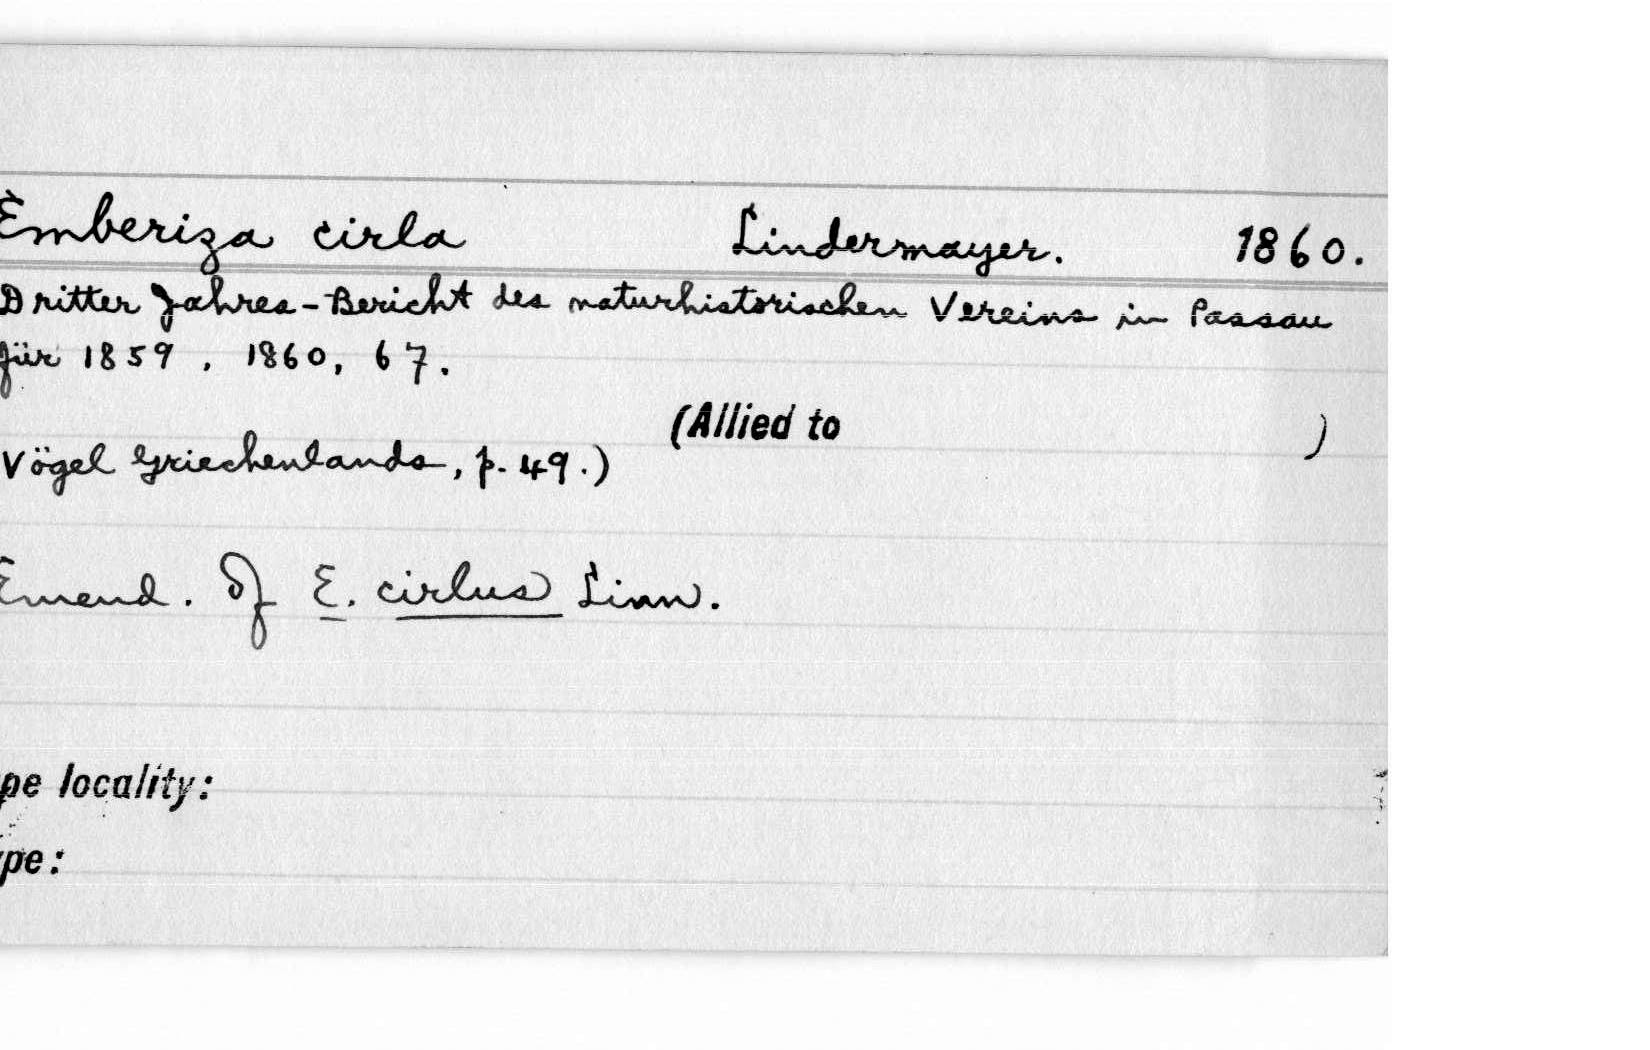 Emberiza cirla Lindermayer. 1860.
Dritter Jahres-Bericht des naturhistorischen Vereins in Passau
für 1859, 1860, 67.
(Allied to )
Vögel Griechenlands, p. 49.)
Emend. Of E. cirlus Linn.
pe locality:
ype: